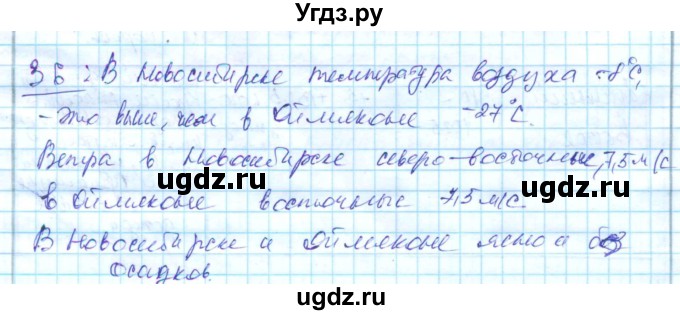 УгдЗ.ру
3Б: В Новосибирске температура воздуха -8°С,
- это выше, чем в Оймяконе -27°С.
Ветра в Новосибирске северо-восточные, 7,5 м/с
угдз.ру угдз.ру
в Оймяконе восточные 7,5 м/с.
В Новосибирске и Оймяконе ясно и без
осадков.
угдз.ру
угдз.ру